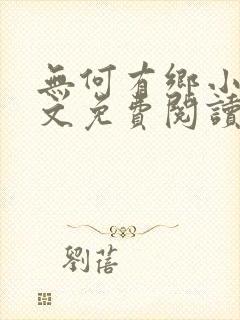 無何有鄉小
文免費閱讀
劉蓓